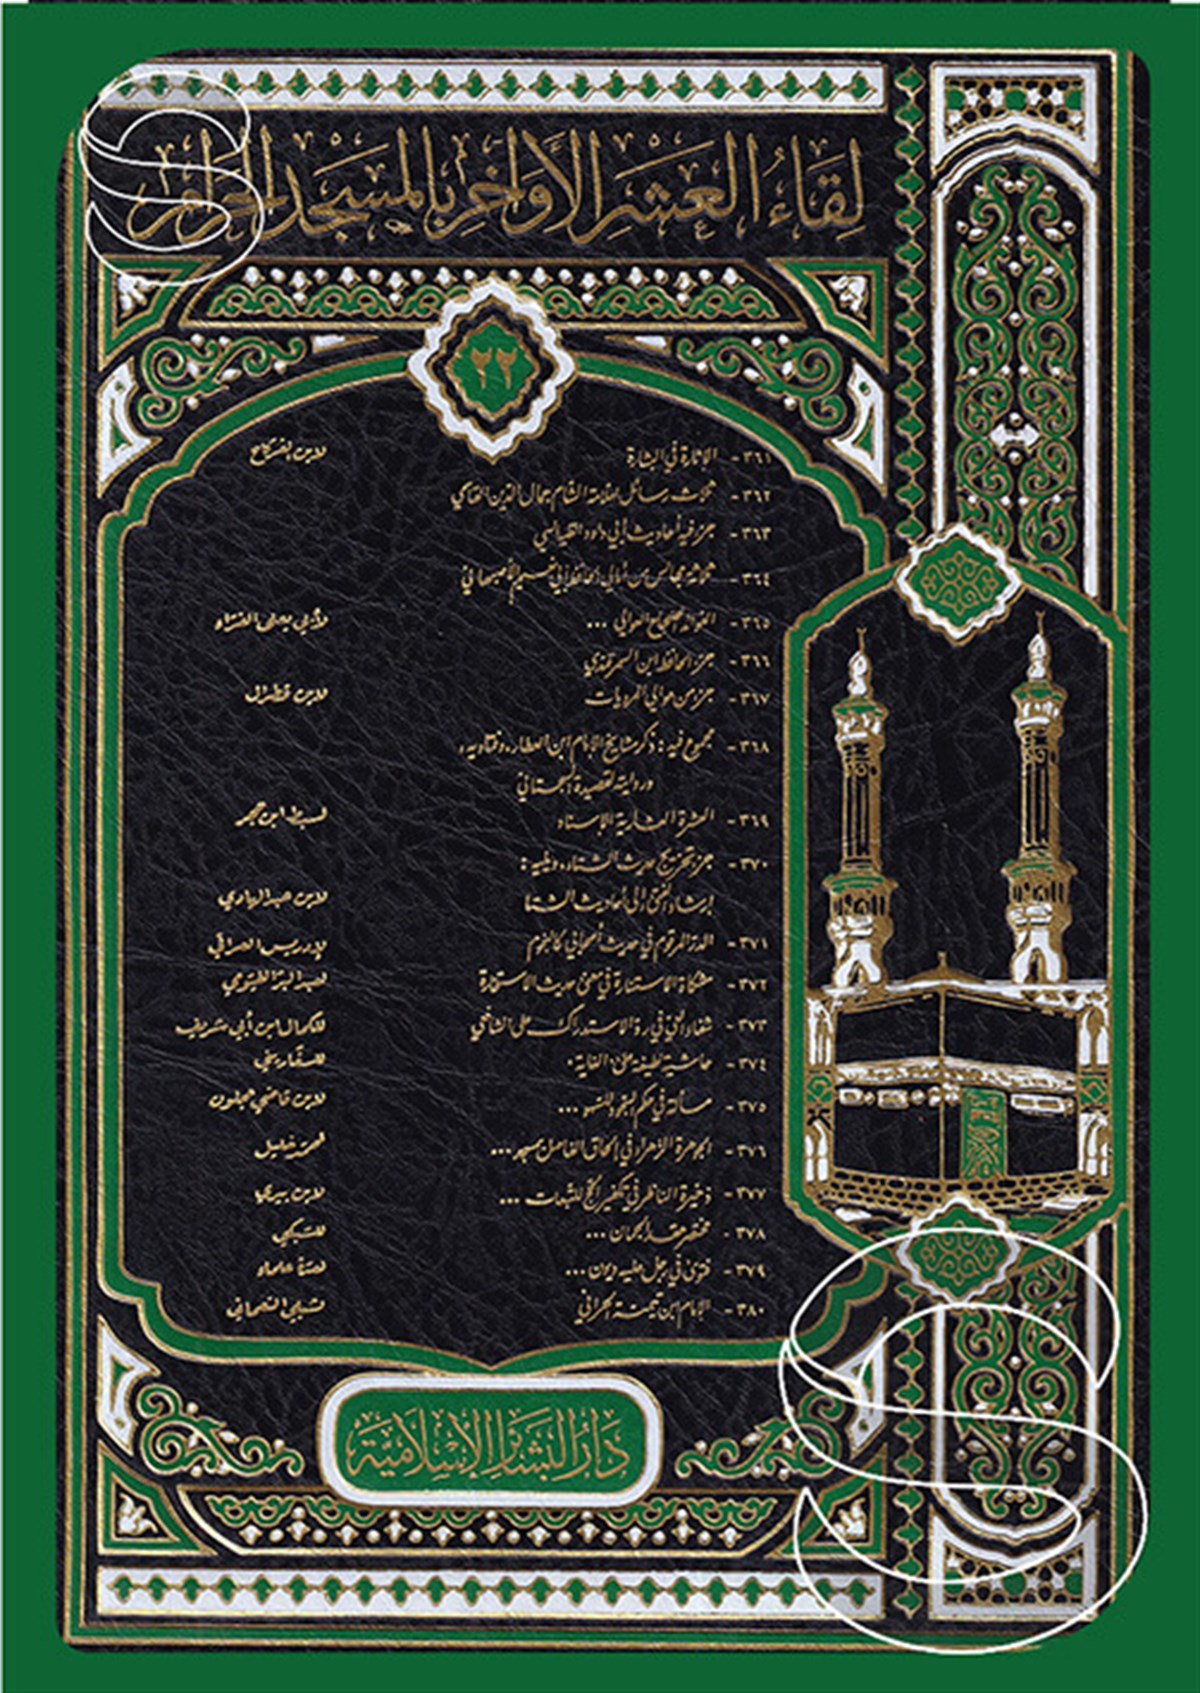 لقاء العشر الأواخر بالمسجد الحرام
٢٢
٣٦١ - الإثارة في البشارة
٣٦٢ - ثلاث رسائل لعلامة الشام جمال الدين القاسمي
٣٦٣ - جزء فيه أحاديث أبي داود الطيالسي
٣٦٤ - ثلاثة مجالس من أمالي الحافظ أبي نعيم الأصبهاني
٣٦٥ - الفوائد الصحاح العوالي ... لأبي يعلى الفراء
٣٦٦ - جزء الحافظ ابن السمرقندي
٣٦٧ - جزء من عوالي المرويات لابن قطرال
٣٦٨ - مجموع فيه: ذكر مشايخ الإمام ابن العطار، وفتاويه،
وروايته لقصيدة السجستاني
٣٦٩ - العشرة العشارية الإسناد لسبط ابن حجر
٣٧٠ - جزء تخريج حديث الشتاء، ويليه:
إرشاد الفتى إلى أحاديث الشتا لابن عبد الهادي
٣٧١ - الدر المرقوم في حديث أصحابي كالنجوم لإدريس العراقي
٣٧٢ - مشكاة الاستنارة في معنى حديث الاستخارة لعبد البر الطيتوي
٣٧٣ - شفاء العي في رد الاستدراك على الشافعي للكمال ابن أبي شريف
٣٧٤ - حاشية لطيفة على «الغاية» للسفاريني
٣٧٥ - مسألة في حكم السجود للسهو ... لابن قاضي عجلون
٣٧٦ - الجوهرة الزهراء في إلحاق الفاصل بمسجد ... محمد خليل
٣٧٧ - ذخيرة الناظر في تكفير الحج للتبعات ... لابن بيري
٣٧٨ - مختصر عقد الجمان ... للسبكي
٣٧٩ - فتوى في رجل عليه ديون ... لستة علماء
٣٨٠ - الإمام ابن تيمية الحراني شبلي النعماني
دار البشائر الإسلامية